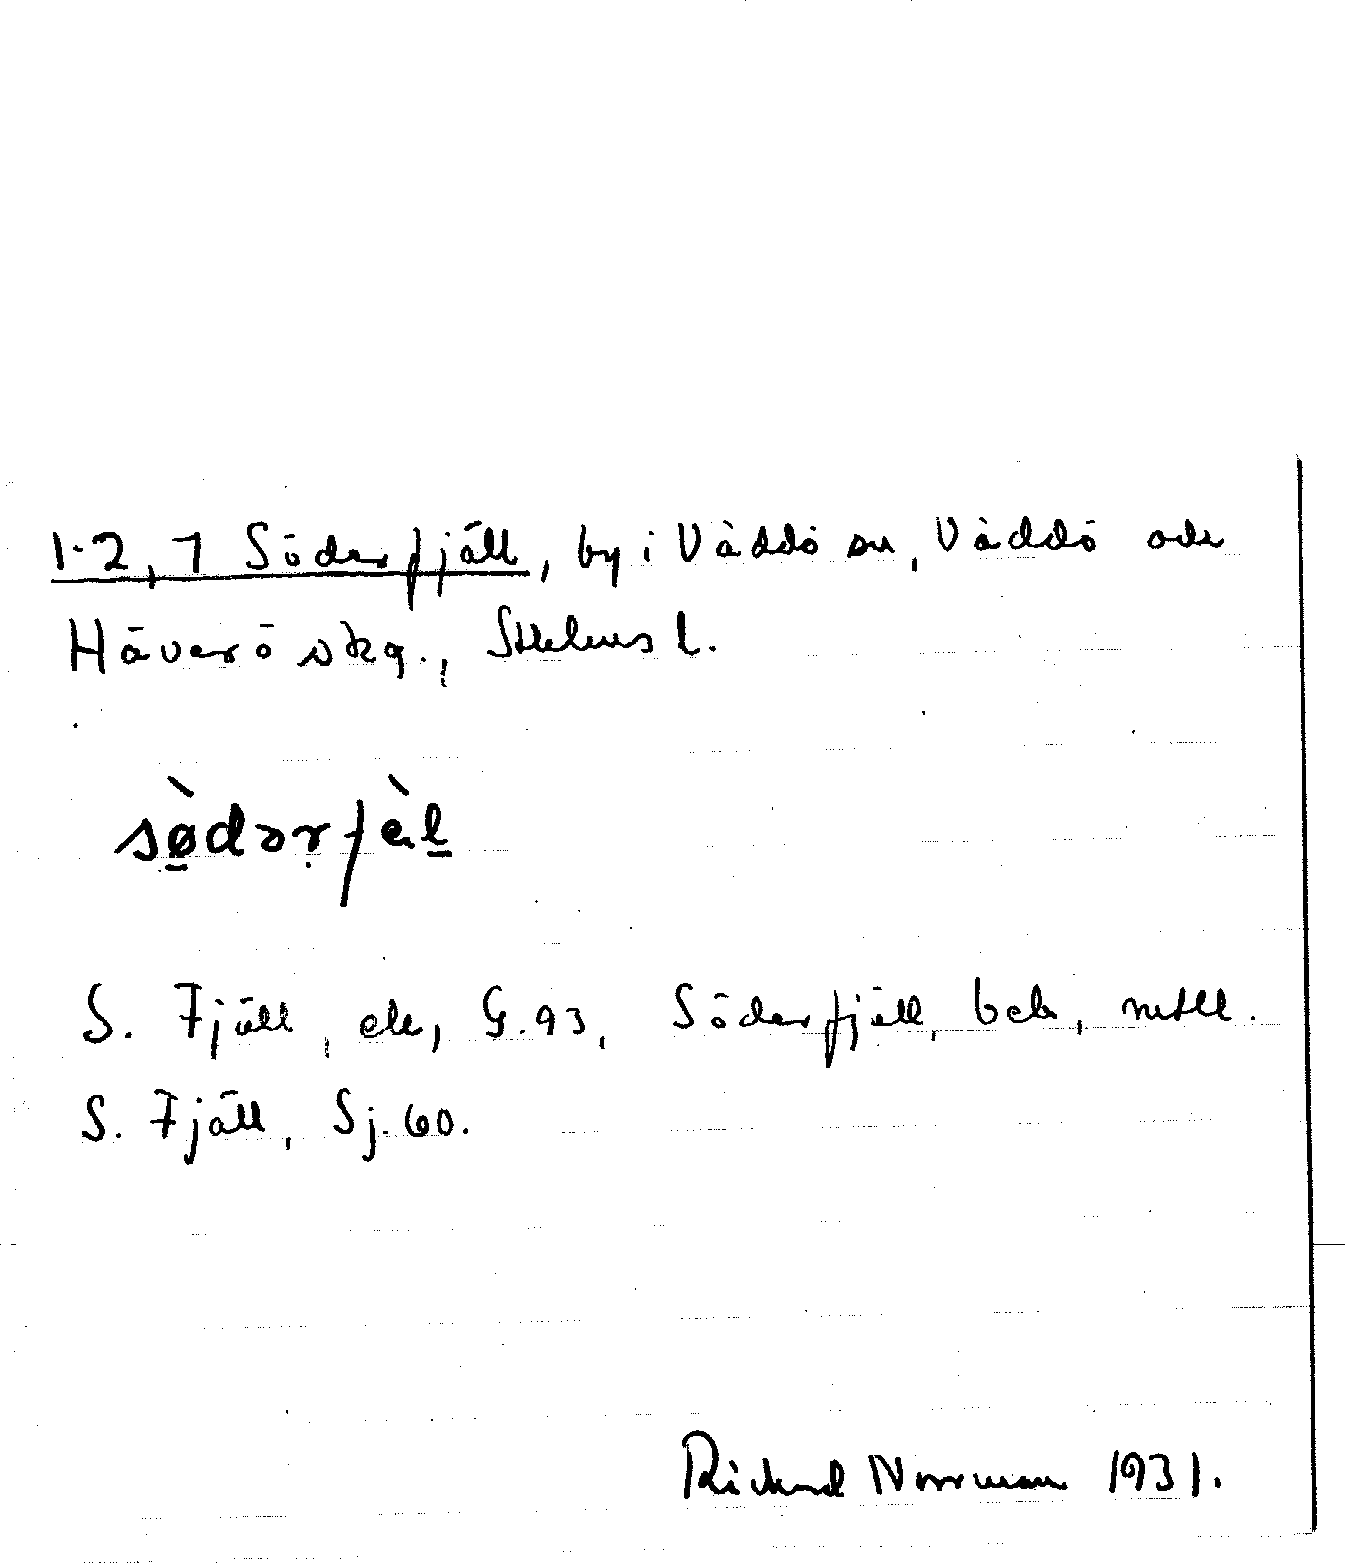 1-2, 7 Söderfjäll, by i Väddö sn, Väddö och
Häverö skg., Sthlms l.
sø̀dərfæ̀l
S. Fjäll, ek, G.93, Söderfjäll, beb, mtll.
S. Fjäll, Sj. 60.
Rickard Norrman 1931.